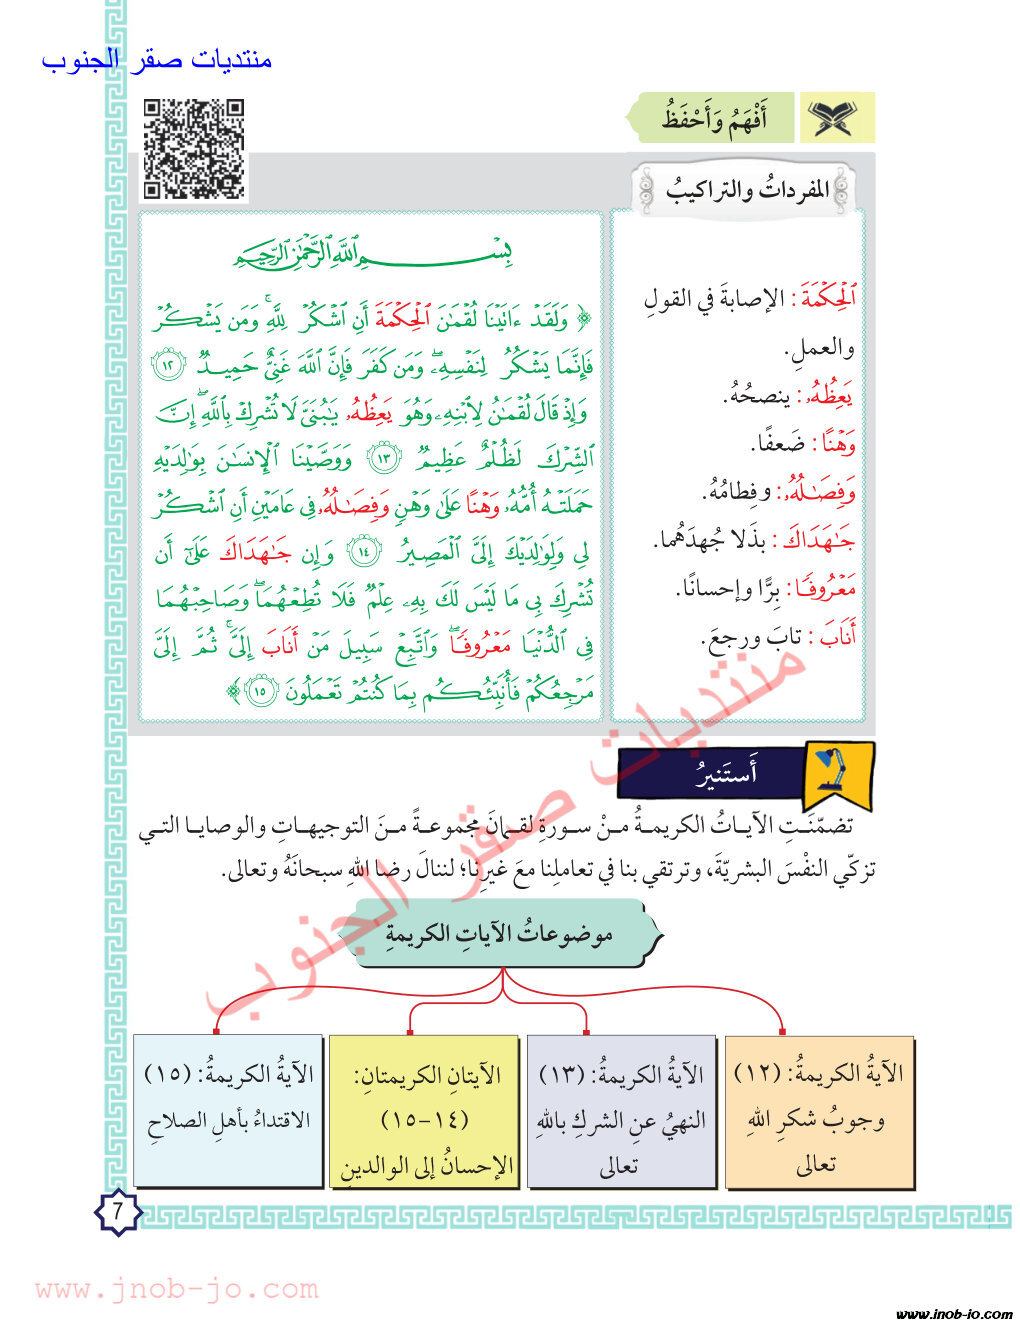 منتديات صقر الجنوب
أَفْهَمُ وَأَحْفَظُ
المفرداتُ والتراكيبُ
ٱلۡحِكۡمَةَ: الإصابةَ في القولِ
والعملِ.
يَعِظُهُۥ: ينصحُهُ.
وَهۡنًا: ضَعفًا.
وَفِصَٰلُهُۥ: وفِطامُهُ.
جَٰهَدَاكَ: بذَلا جُهدَهُما.
مَعۡرُوفٗا: بِرًّا وإحسانًا.
أَنَابَ: تابَ ورجعَ.
بِسْمِ اللَّهِ الرَّحْمَٰنِ الرَّحِيمِ
﴿ وَلَقَدۡ ءَاتَيۡنَا لُقۡمَٰنَ ٱلۡحِكۡمَةَ أَنِ ٱشۡكُرۡ لِلَّهِۚ وَمَن يَشۡكُرۡ
فَإِنَّمَا يَشۡكُرُ لِنَفۡسِهِۦۖ وَمَن كَفَرَ فَإِنَّ ٱللَّهَ غَنِيٌّ حَمِيدٞ ١٢
وَإِذۡ قَالَ لُقۡمَٰنُ لِٱبۡنِهِۦ وَهُوَ يَعِظُهُۥ يَٰبُنَيَّ لَا تُشۡرِكۡ بِٱللَّهِۖ إِنَّ
ٱلشِّرۡكَ لَظُلۡمٌ عَظِيمٞ ١٣ وَوَصَّيۡنَا ٱلۡإِنسَٰنَ بِوَٰلِدَيۡهِ
حَمَلَتۡهُ أُمُّهُۥ وَهۡنًا عَلَىٰ وَهۡنٖ وَفِصَٰلُهُۥ فِي عَامَيۡنِ أَنِ ٱشۡكُرۡ
لِي وَلِوَٰلِدَيۡكَ إِلَيَّ ٱلۡمَصِيرُ ١٤ وَإِن جَٰهَدَاكَ عَلَىٰٓ أَن
تُشۡرِكَ بِي مَا لَيۡسَ لَكَ بِهِۦ عِلۡمٞ فَلَا تُطِعۡهُمَاۖ وَصَاحِبۡهُمَا
فِي ٱلدُّنۡيَا مَعۡرُوفٗاۖ وَٱتَّبِعۡ سَبِيلَ مَنۡ أَنَابَ إِلَيَّۚ ثُمَّ إِلَيَّ
مَرۡجِعُكُمۡ فَأُنَبِّئُكُم بِمَا كُنتُمۡ تَعۡمَلُونَ ١٥ ﴾
أَستَنيرُ
تضمّنَتِ الآياتُ الكريمةُ منْ سورةِ لقمانَ مجموعةً منَ التوجيهاتِ والوصايا التي
تزكّي النفْسَ البشريّةَ، وترتقي بنا في تعاملِنا معَ غيرِنا؛ لننالَ رضا اللهِ سبحانَهُ وتعالى.
منتديات صقر الجنوب
موضوعاتُ الآياتِ الكريمةِ
الآيةُ الكريمةُ: (١٢)
وجوبُ شكرِ اللهِ
تعالى
الآيةُ الكريمةُ: (١٣)
النهيُ عنِ الشركِ باللهِ
تعالى
الآيتانِ الكريمتانِ:
(١٤-١٥)
الإحسانُ إلى الوالدينِ
الآيةُ الكريمةُ: (١٥)
الاقتداءُ بأهلِ الصلاحِ
7
www.jnob-jo.com
www.jnob-jo.com